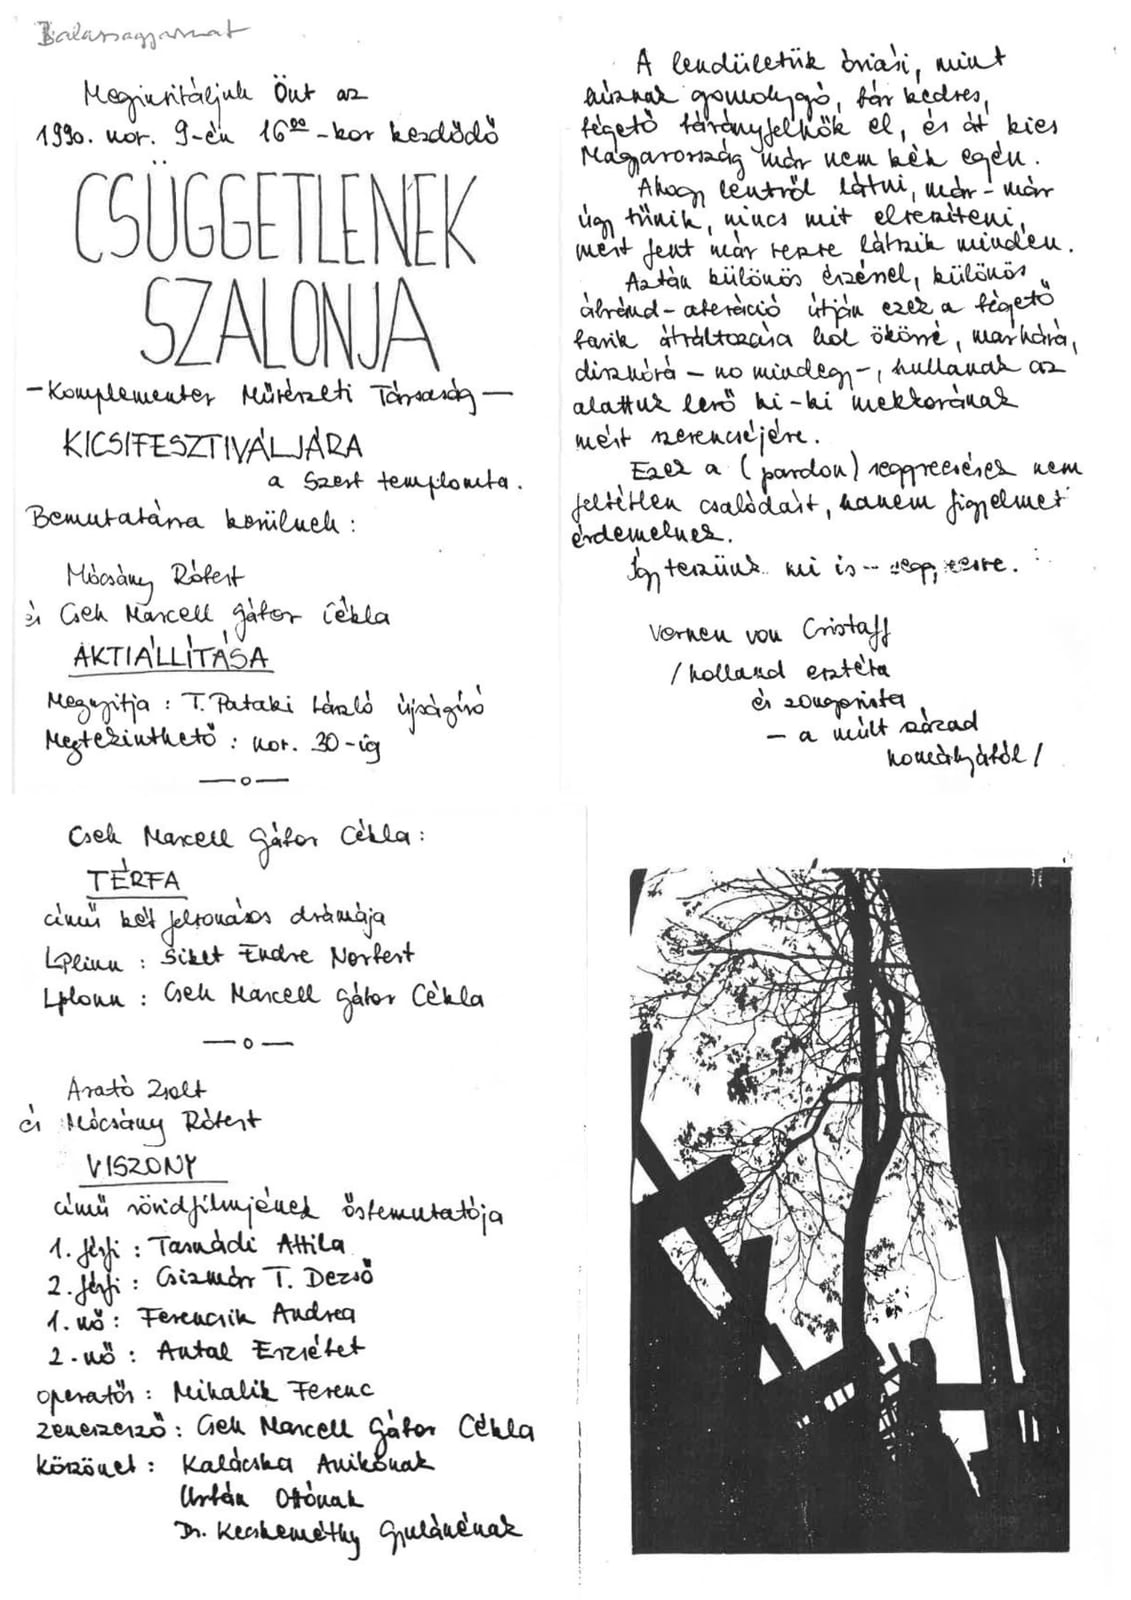 Balassagyarmat
Meginvitáljuk Önt az
1990. nov. 9-én 16⁰⁰-kor kezdődő
CSÜGGETLENEK
SZALONJA
-Komplementer Művészeti Társaság-
KICSIFESZTIVÁLJÁRA
a Szerb templomba.
Bemutatásra kerülnek:
Mócsány Róbert
és Cseh Marcell Gábor Cékla
AKTIÁLLÍTÁSA
Megnyitja: T. Pataki László újságíró
Megtekinthető: nov. 30-ig
—o—
Cseh Marcell Gábor Cékla:
TÉRFA
című két felvonásos drámája
Siket Endre Norbert
Cseh Marcell Gábor Cékla
—o—
Arató Zsolt
és Mócsány Róbert
VISZONY
című rövidfilmjének ősbemutatója
1. férfi: Tasnádi Attila
2. férfi: Csizmár T. Dezső
1. nő: Ferencsik Andrea
2. nő: Antal Erzsébet
operatőr: Mihalik Ferenc
zeneszerző: Cseh Marcell Gábor Cékla
köszönet: Kalácska Anikónak
Urbán Ottónak
Dr. Kecskeméthy Gyulánénak
A lendületük óriási, mint
húznak gomolygó, bár kedves,
égető bárányfelhők el, és át kies
Magyarország már nem kék egén.
Ahogy lentről látni, már-már
úgy tűnik, nincs mit elveszíteni,
mert fent már veszve látszik minden.
Aztán különös érzéssel, különös
ábránd- útján ezek a égető
barik átváltozása hol ökörré, marhává,
disznóvá - no mindegy -, hullanak az
alattuk levő ki-ki
szerencséjére.
Ezek a (pardon) seggreesések nem
feltétlen csalódást, hanem figyelmet
érdemelnek.
Így teszünk mi is --
Vernen von Cristaff
/holland esztéta
és zongorista
- a múlt század
homályából/